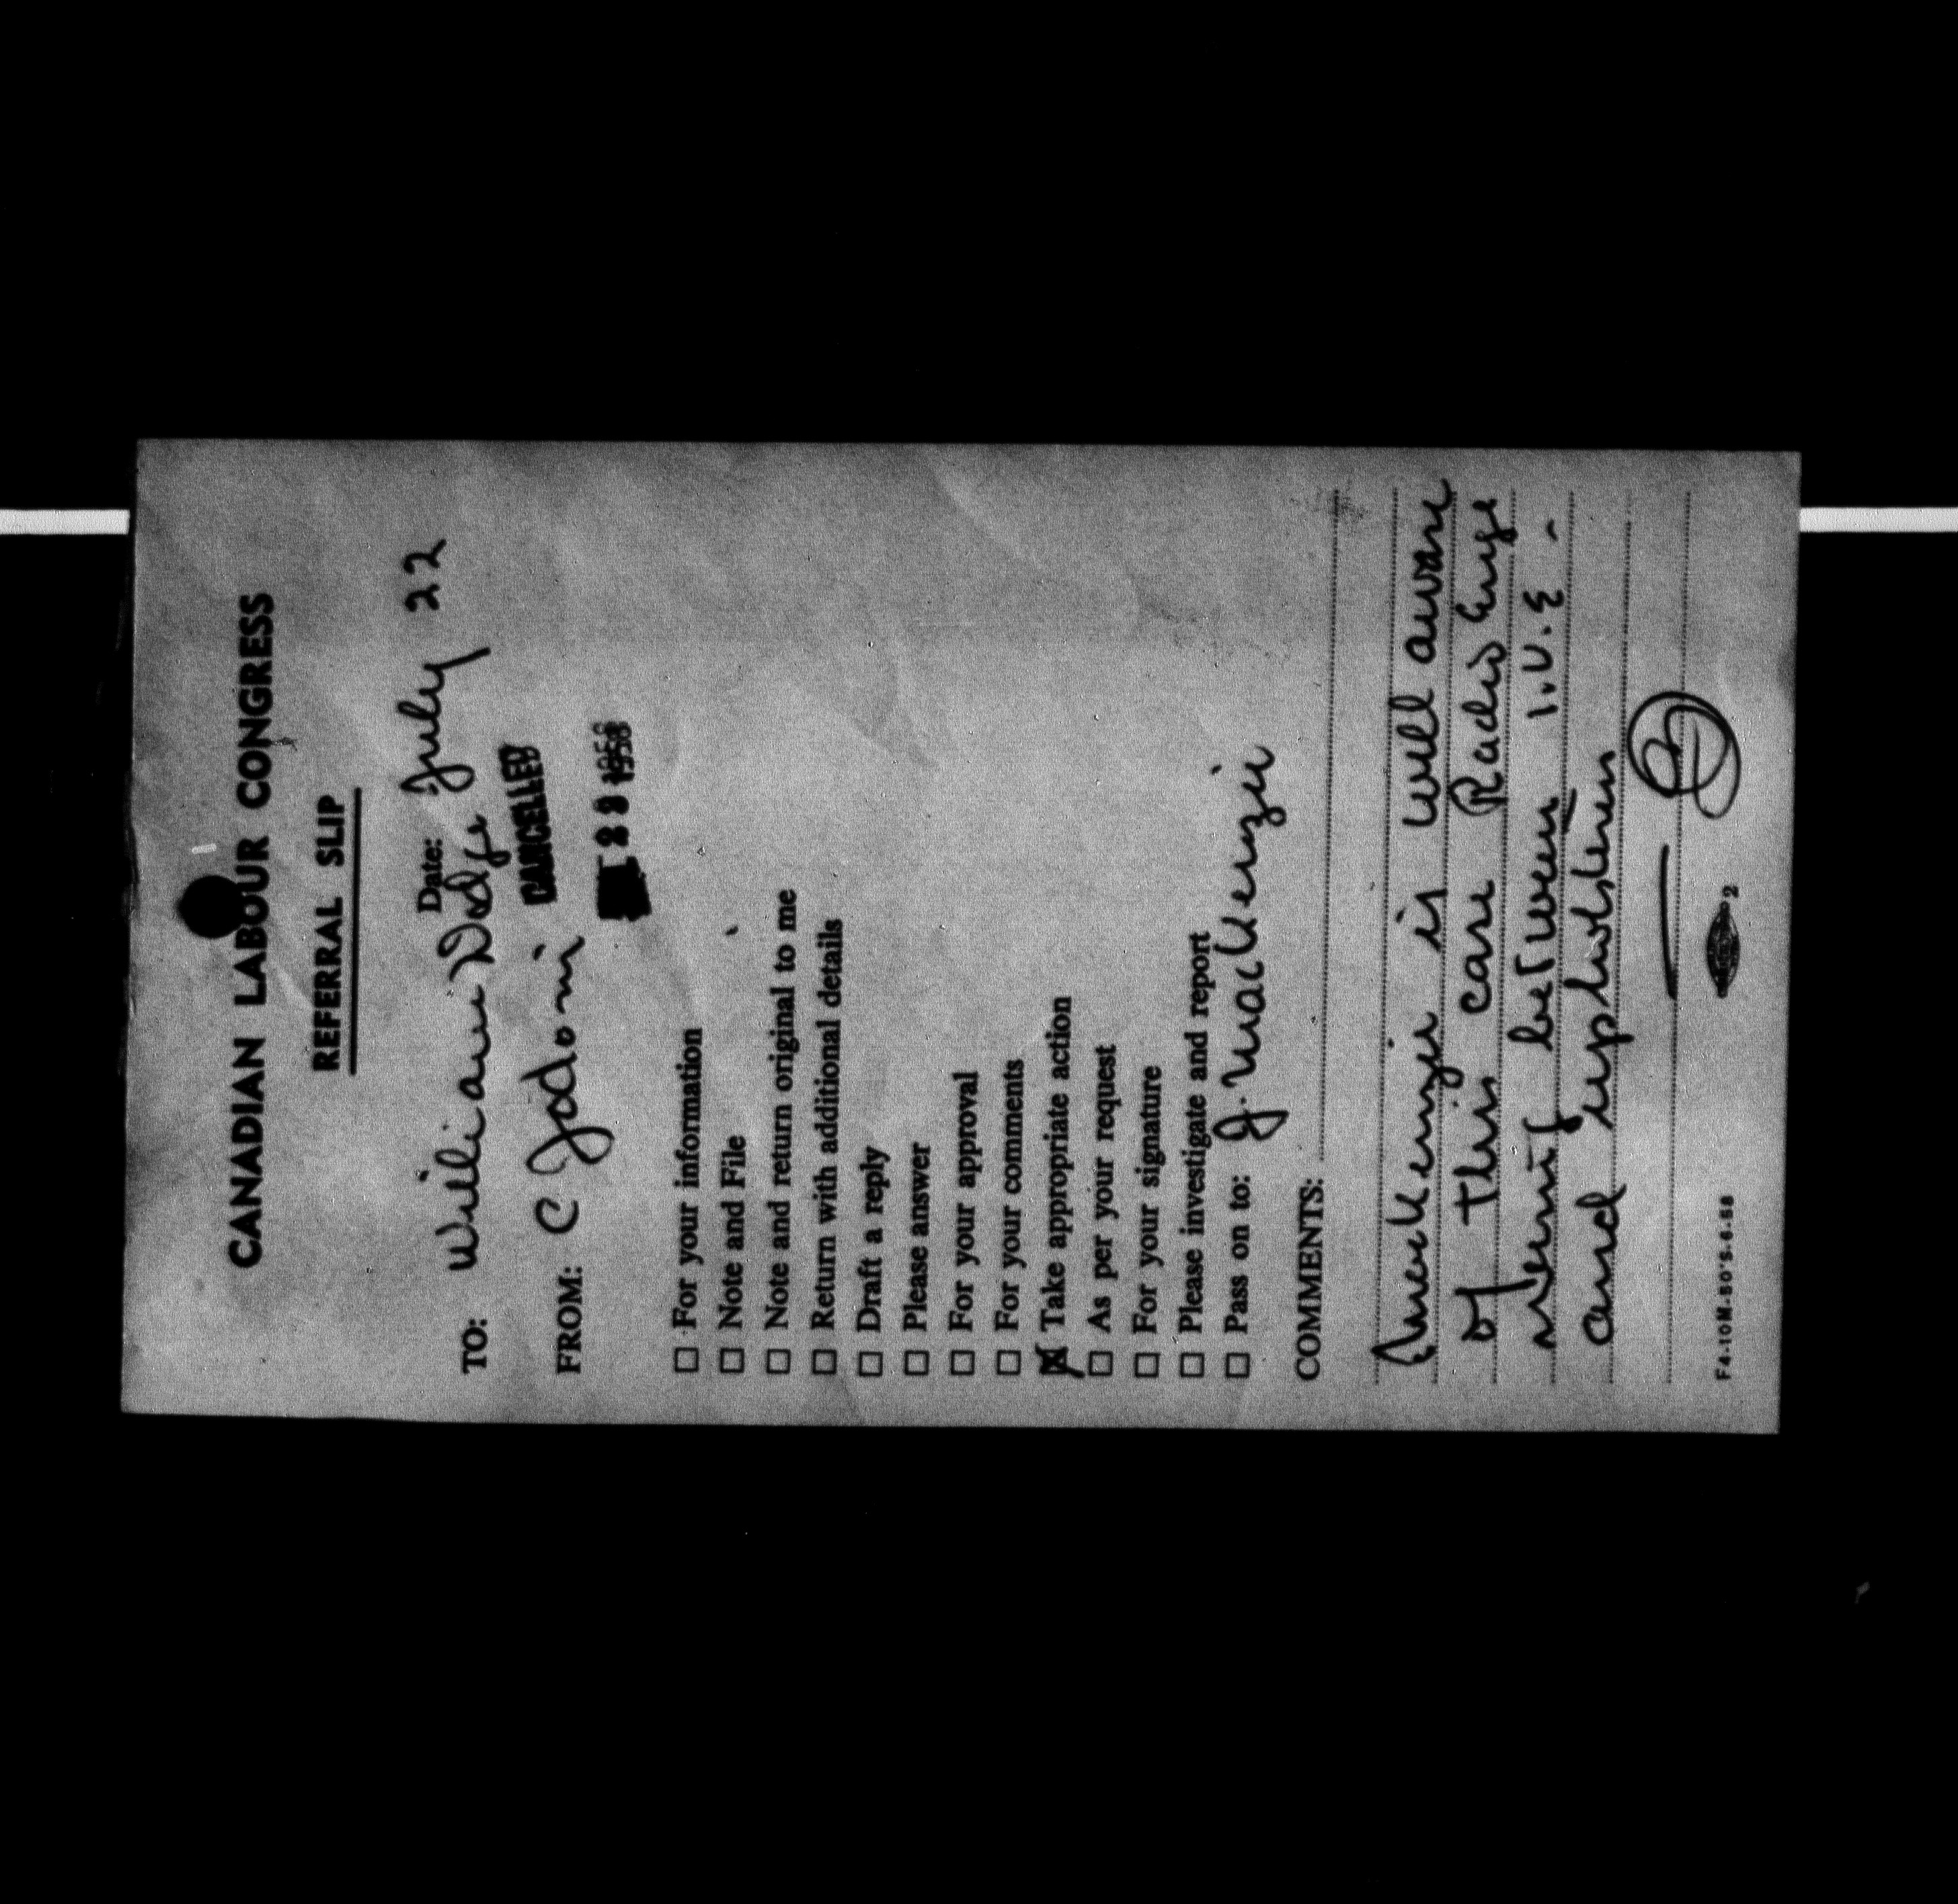 CANADIAN LABOUR CONGRESS
REFERRAL SLIP
Date: July 22
TO: William Dodge
CANCELLED
FROM: C Jodoin
1958
☐ For your information
☐ Note and File
☐ Note and return original to me
☐ Return with additional details
☐ Draft a reply
☐ Please answer
☐ For your approval
☐ For your comments
☒ Take appropriate action
☐ As per your request
☐ For your signature
☐ Please investigate and report
☐ Pass on to: J. MacKenzie
COMMENTS:
MacKenzie is well aware
of this case Radio Enge
between I.U.E -
and upholsterers
F4-10M-50'S-6-58
2